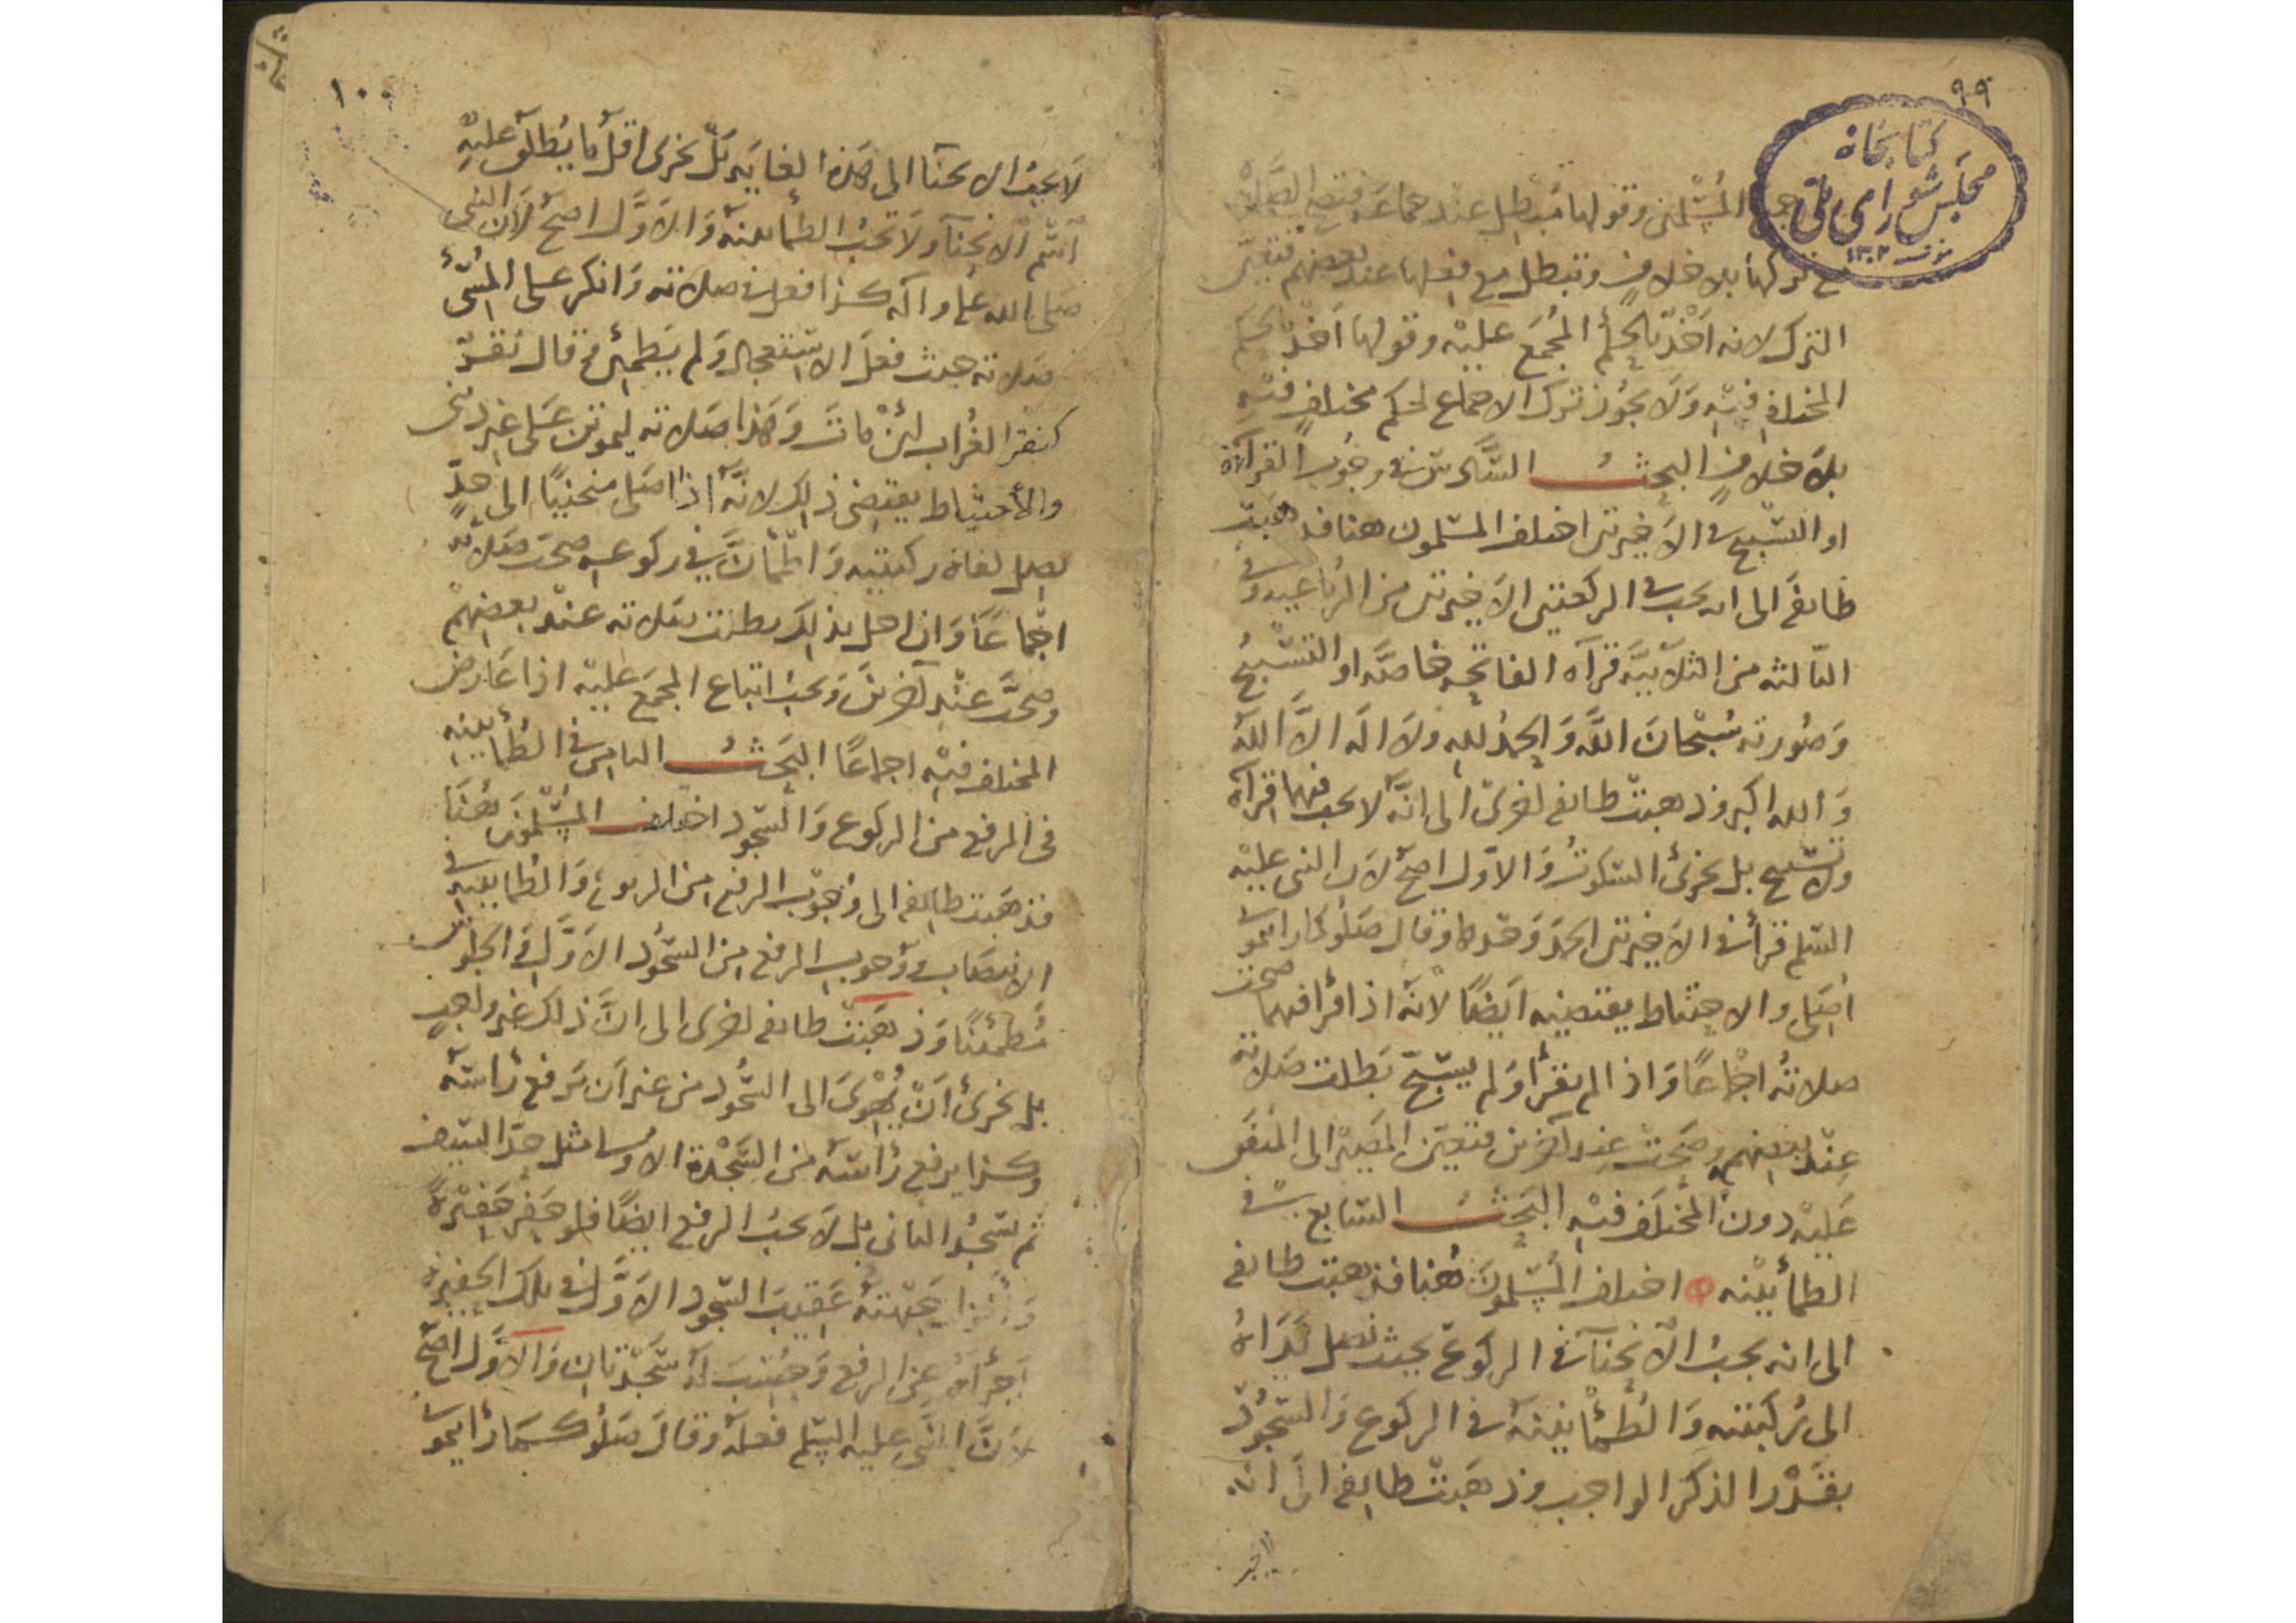 ٩٩
كتابخانه
مجلس شورای ملی
١٣٠٢
المسلمين وقولها مبطل عند جماعة فتصح الصلاة
مع تركها بلا خلاف وتبطل مع فعلها عند بعضهم فتعين
الترك لانه اَخْذ بالحكم المُجمَع عليْه وقولها اَخذ بالحكم
المختلف فيْه وَلَا يجُوز ترك الاجماع لحكم مختلف فيْه
بلا خلافٍ البحثُ السَّادس في وجُوب القرآءة
او التسْبيح في الاَخيرتين اختلف المسْلمون هنا فذهبت
طائفة الى انه يجب في الركعتين الاَخيرتين من الرباعية وفي
الثالثه من الثلاثيَّه قرآة الفاتحه خاصَّه او التسْبيحُ
وَصُورته سُبْحانَ اللَّه وَالحمدُ لله ولا اله الاَّ اللّه
وَالله اكبر وذهبتْ طائفة اخرىْ الى انَّه لا يجب فيهما قرآة
ولا تسْبيح بل يجزئ السّكوتُ وَالاوّل اصحّ لان النبى عليْه
السّلم قرأ في الاَخيرتين الحمدَ وَحْدها وقال صَلُوا كما رايتموني
اُصَلى والاحتياط يقتضيه اَيضًا لاَنّه اذا قرأ فيهما صحت
صلاتهُ اجماعًا وَاذا لم يقرأ وَلم يسَبّح بَطلت صَلاته
عِنْد بعضهم وصَحّتْ عند آخرين فتعيّن المَصيْر الى المتفق
عَليْه دونَ المختلَف فيْه البَحْثُ السّابع في
الطمأنينه اختلف المُسْلمونَ هُنا فذهبت طائفة
الى انه يجبُ الاَنحنآ في الركوع بحيث تصل يَدَاهُ
الى رُكبتيه وَالطُمأنينه في الركوع وَالسّجُود
بقَدْر الذكر الواجب وذهبَتْ طائفة الى انه
١٠٠
لَا يجبُ الانحنآ الى هَذه الغايَه بَلْ يجزى اقلّ ما يُطلَق عليْهِ
اسْم الانحنآ ولَا تجبُ الطمأنينه وَالاَوَّل اصَحّ لاَن النبى
صَلى الله عليه واله كذا فعل في صلاته وَانكر على المُسيْ
صَلاته حيث فعَل الاسْتعجال وَلم يَطمئن وقال نقر
كنقر الغُراب لئنْ ماتَ وَهَذا صَلاته ليموتن عَلى غير دينى
والاحتياط يقتضى ذلك لانّه اذا صَلى منحنيًا الى حدٍّ
تصل كفاه ركبتيه وَاطمأنَّ في ركوعه صحت صَلاته
اجْماعًا وَان اخل بذلك بطلت صَلاته عنْد بعضهمْ
وصحَّت عنْد آخرين وَيجبُ اتباع المجمَع عليْه اذا عَارض
المختلف فيْه اجماعًا البَحْثُ الثامن في الطُمأنينه
فى الرفع من الركوع وَالسّجود اختلف المُسْلمون هُنَا
فذهَبت طائفة الى وُجُوب الرفع من الركوع وَالطُمأنينه في
الانتصَاب وَوجوب الرفع من السّجُود الاَوَّل وَالجلوس
مُطمئنًا وَذهَبَتْ طائفة اخرى الى انَّ ذلك غير واجبٍ
بل يجزئ اَنْ يهْوىَ الى السّجُود من غير اَن يَرفع رَاسَه
وكذا يرفع رَاسَه من السّجْدة الاولى مثل حدّ السّيف
ثم يسْجُد الثانى بل لَا يجبُ الرفع ايضًا فلو حَفر حَفيْرةً
وَانزل جَبْهته عَقيْبَ السّجود الاَوَّل في تلك الحَفيرة
اَجزأه عن الرفع وَحُسِبَ له سَجْدتان وَالاَوَّل اصَحّ
لاَنَّ النَّبى عليه السّلم فعلَه وقالَ صَلُوا كمَا رَايتموني